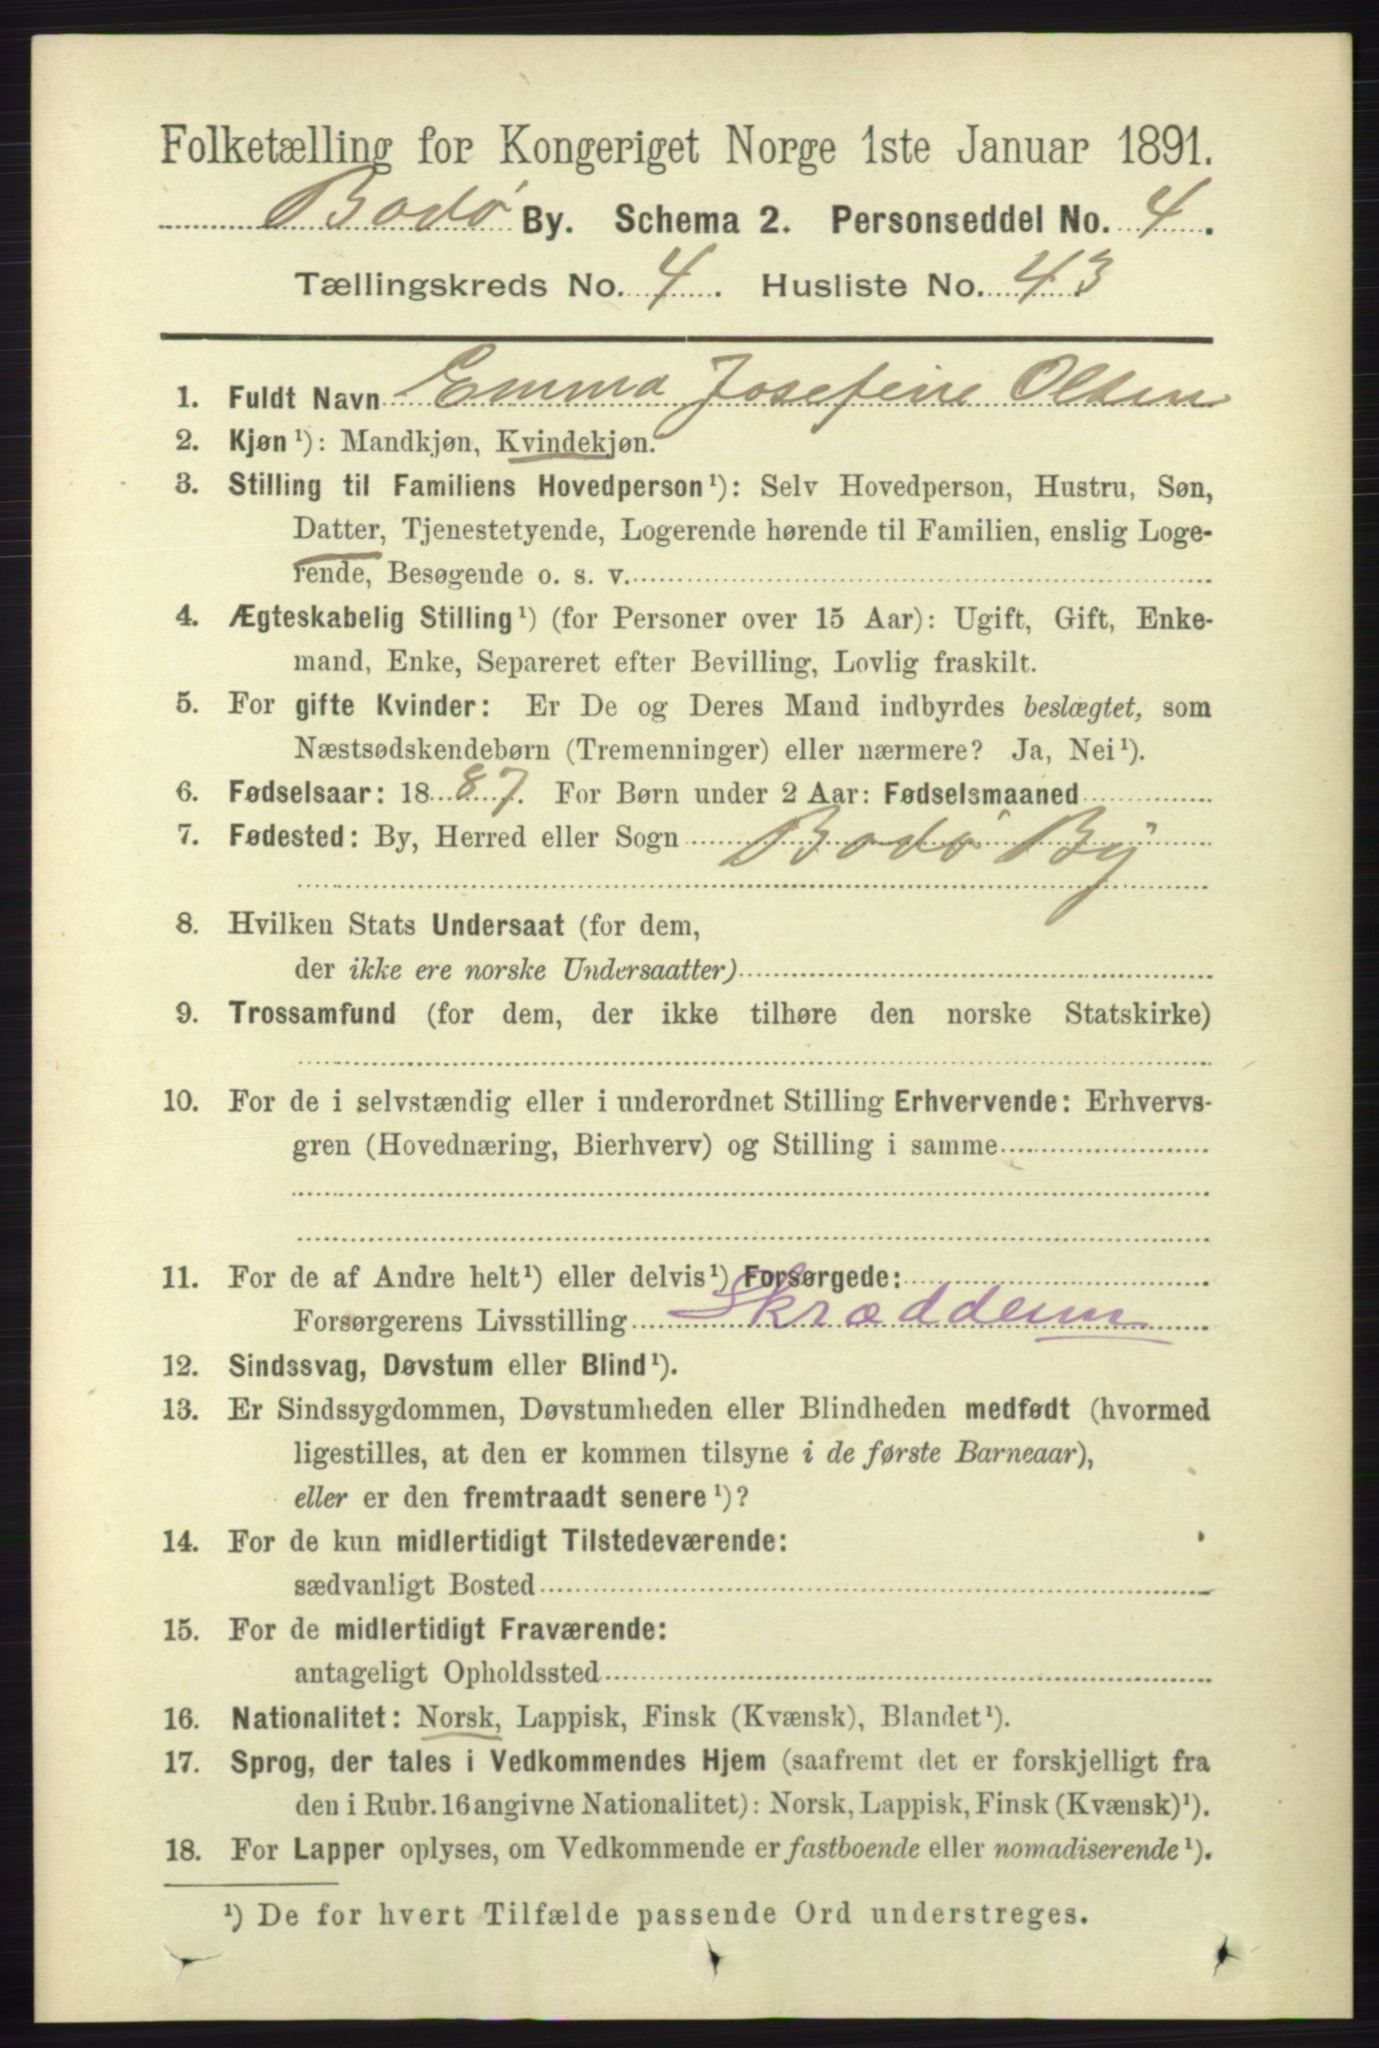 Folketælling for Kongeriget Norge 1ste Januar 1891.
Bodø By. Schema 2. Personseddel No. 4.
Tællingskreds No. 4. Husliste No. 43
1. Fuldt Navn Emma Josefine Olsen
2. Kjøn¹): Mandkjøn, Kvindekjøn.
3. Stilling til Familiens Hovedperson¹): Selv Hovedperson, Hustru, Søn,
Datter, Tjenestetyende, Logerende hørende til Familien, enslig Loge-
rende, Besøgende o. s. v.
4. Ægteskabelig Stilling¹) (for Personer over 15 Aar): Ugift, Gift, Enke-
mand, Enke, Separeret efter Bevilling, Lovlig fraskilt.
5. For gifte Kvinder: Er De og Deres Mand indbyrdes beslægtet, som
Næstsødskendebørn (Tremenninger) eller nærmere? Ja, Nei¹).
6. Fødselsaar: 1887. For Børn under 2 Aar: Fødselsmaaned
7. Fødested: By, Herred eller Sogn Bodø By
8. Hvilken Stats Undersaat (for dem,
der ikke ere norske Undersaatter)
9. Trossamfund (for dem, der ikke tilhøre den norske Statskirke)
10. For de i selvstændig eller i underordnet Stilling Erhvervende: Erhvervs-
gren (Hovednæring, Bierhverv) og Stilling i samme
11. For de af Andre helt¹) eller delvis¹) Forsørgede:
Forsørgerens Livsstilling
12. Sindssvag, Døvstum eller Blind¹).
13. Er Sindssygdommen, Døvstumheden eller Blindheden medfødt (hvormed
ligestilles, at den er kommen tilsyne i de første Barneaar),
eller er den fremtraadt senere¹)?
14. For de kun midlertidigt Tilstedeværende:
sædvanligt Bosted
15. For de midlertidigt Fraværende:
antageligt Opholdssted
16. Nationalitet: Norsk, Lappisk, Finsk (Kvænsk), Blandet¹).
17. Sprog, der tales i Vedkommendes Hjem (saafremt det er forskjelligt fra
den i Rubr. 16 angivne Nationalitet): Norsk, Lappisk, Finsk (Kvænsk)¹).
18. For Lapper oplyses, om Vedkommende er fastboende eller nomadiserende¹).
¹) De for hvert Tilfælde passende Ord understreges.